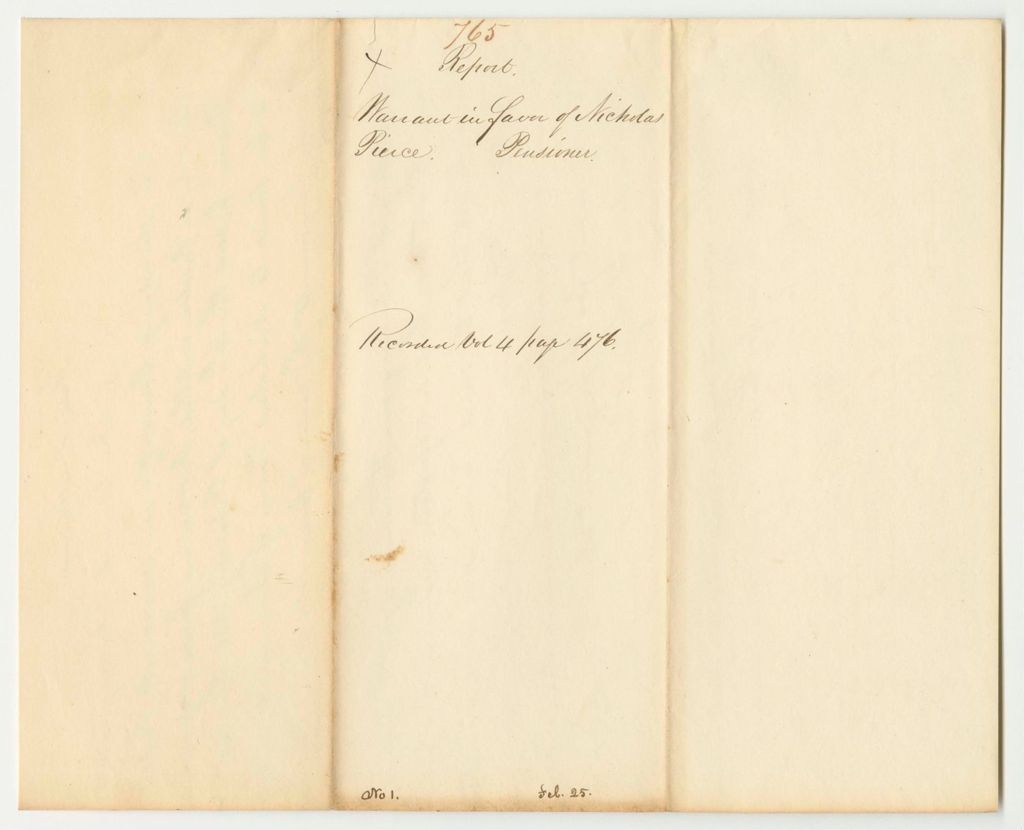 765
Report.
Warrant in favor of Nicholas
Pierce. Pensioner.
Recorded Vol 4 page 476.
No 1. Feb. 25.